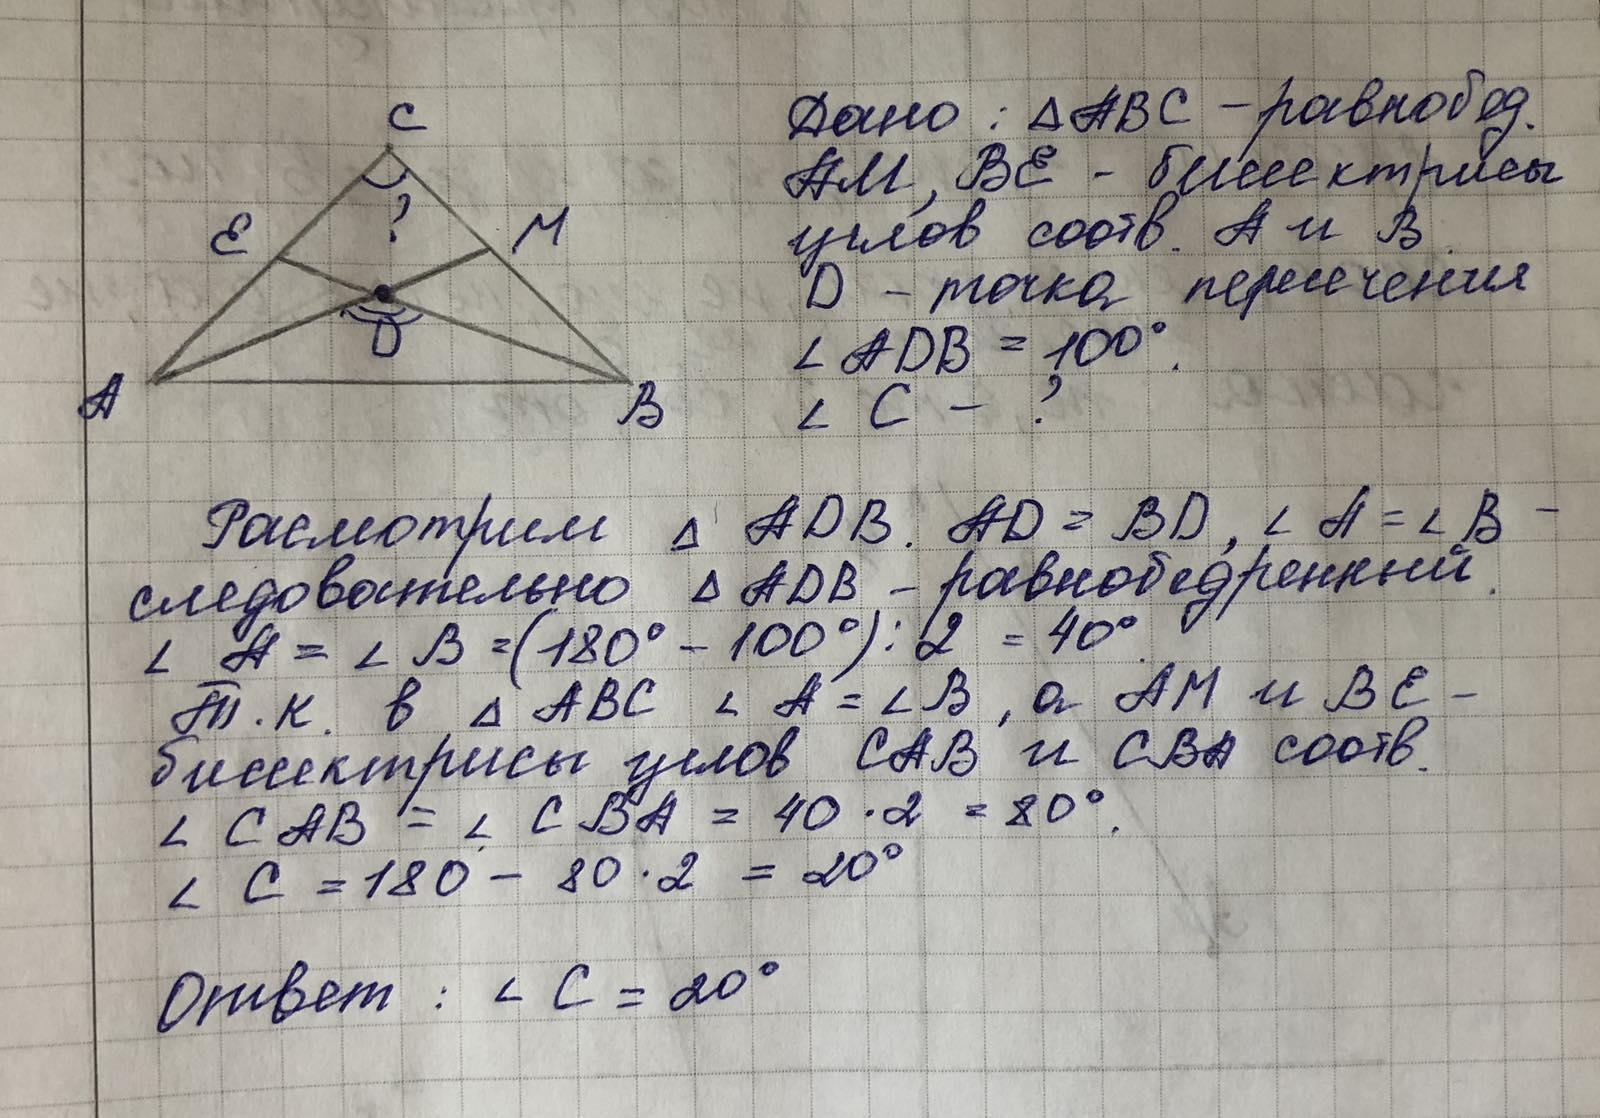 C
E
?
M
D
A
B
Дано : △ABC – равнобед.
AM, BE – биссектрисы
углов соотв. A и B.
D – точка пересечения
∠ADB = 100°.
∠ C – ?
Расмотрим △ ADB. AD = BD, ∠A = ∠B –
следовательно △ADB – равнобедренный.
∠ A = ∠ B = (180° – 100°) : 2 = 40°.
Т.к. в △ ABC ∠ A = ∠B, а AM и BE –
биссектрисы углов CAB и CBA соотв.
∠ CAB = ∠ CBA = 40 · 2 = 80°.
∠ C = 180 – 80 · 2 = 20°
Ответ : ∠ C = 20°